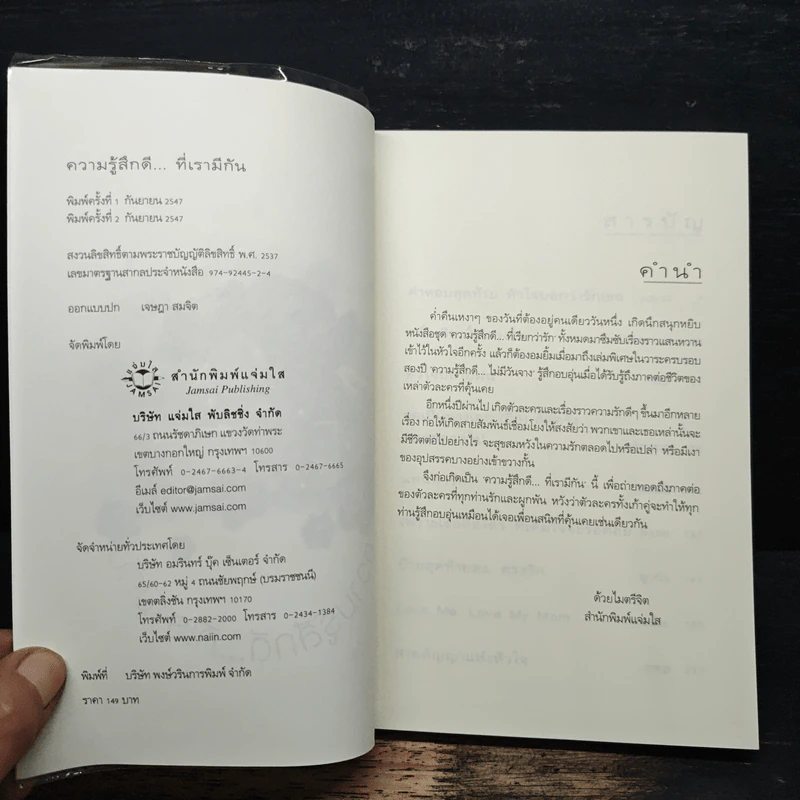 ความรู้สึกดี... ที่เรามีกัน
พิมพ์ครั้งที่ 1 กันยายน 2547
พิมพ์ครั้งที่ 2 กันยายน 2547
สงวนลิขสิทธิ์ตามพระราชบัญญัติลิขสิทธิ์ พ.ศ. 2537
เลขมาตรฐานสากลประจำหนังสือ 974-92445-2-4
ออกแบบปก เจษฎา สมจิต
จัดพิมพ์โดย
แจ่มใส
JAMSAI
สำนักพิมพ์แจ่มใส
Jamsai Publishing
บริษัท แจ่มใส พับลิชชิ่ง จำกัด
66/3 ถนนรัชดาภิเษก แขวงวัดท่าพระ
เขตบางกอกใหญ่ กรุงเทพฯ 10600
โทรศัพท์ 0-2467-6663-4 โทรสาร 0-2467-6665
อีเมล์ editor@jamsai.com
เว็บไซต์ www.jamsai.com
จัดจำหน่ายทั่วประเทศโดย
บริษัท อมรินทร์ บุ๊ค เซ็นเตอร์ จำกัด
65/60-62 หมู่ 4 ถนนชัยพฤกษ์ (บรมราชชนนี)
เขตตลิ่งชัน กรุงเทพฯ 10170
โทรศัพท์ 0-2882-2000 โทรสาร 0-2434-1384
เว็บไซต์ www.naiin.com
พิมพ์ที่ บริษัท พงษ์วรินการพิมพ์ จำกัด
ราคา 149 บาท
คำนำ
ค่ำคืนเหงาๆ ของวันที่ต้องอยู่คนเดียววันหนึ่ง เกิดนึกสนุกหยิบ
หนังสือชุด 'ความรู้สึกดี... ที่เรียกว่ารัก' ทั้งหมดมาซึมซับเรื่องราวแสนหวาน
เข้าไว้ในหัวใจอีกครั้ง แล้วก็ต้องอมยิ้มเมื่อมาถึงเล่มพิเศษในวาระครบรอบ
สองปี 'ความรู้สึกดี... ไม่มีวันจาง' รู้สึกอบอุ่นเมื่อได้รับรู้ถึงภาคต่อชีวิตของ
เหล่าตัวละครที่คุ้นเคย
อีกหนึ่งปีผ่านไป เกิดตัวละครและเรื่องราวความรักดีๆ ขึ้นมาอีกหลาย
เรื่อง ก่อให้เกิดสายสัมพันธ์เชื่อมโยงให้สงสัยว่า พวกเขาและเธอเหล่านั้นจะ
มีชีวิตต่อไปอย่างไร จะสุขสมหวังในความรักตลอดไปหรือเปล่า หรือมีเงา
ของอุปสรรคบางอย่างเข้าขวางกั้น
จึงก่อเกิดเป็น 'ความรู้สึกดี... ที่เรามีกัน' นี้ เพื่อถ่ายทอดถึงภาคต่อ
ของตัวละครที่ทุกท่านรักและผูกพัน หวังว่าตัวละครทั้งเก้าคู่จะทำให้ทุก
ท่านรู้สึกอบอุ่นเหมือนได้เจอเพื่อนสนิทที่คุ้นเคยเช่นเดียวกัน
ด้วยไมตรีจิต
สำนักพิมพ์แจ่มใส